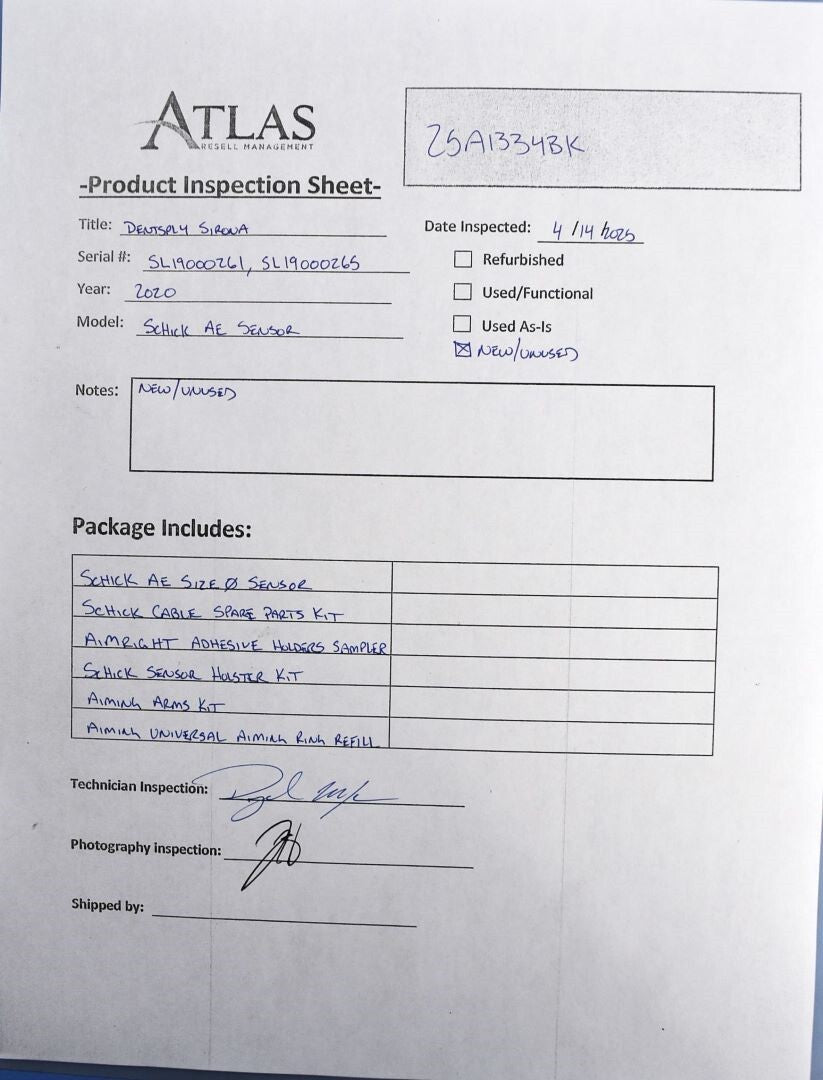 ATLAS
RESELL MANAGEMENT
25A1334BK
-Product Inspection Sheet-
Title: DENTSPLY SIRONA
Date Inspected: 4/14/2025
Serial #: SL19000261, SL19000265
Refurbished
Year: 2020
Used/Functional
Model: SCHICK AE SENSOR
Used As-Is
☒ NEW/UNUSED
Notes: NEW/UNUSED
Package Includes:
SCHICK AE SIZE Ø SENSOR
SCHICK CABLE SPARE PARTS KIT
AIMRIGHT ADHESIVE HOLDERS SAMPLER
SCHICK SENSOR HOLSTER KIT
AIMING ARMS KIT
AIMING UNIVERSAL AIMING RING REFILL
Technician Inspection:
Photography inspection:
Shipped by: